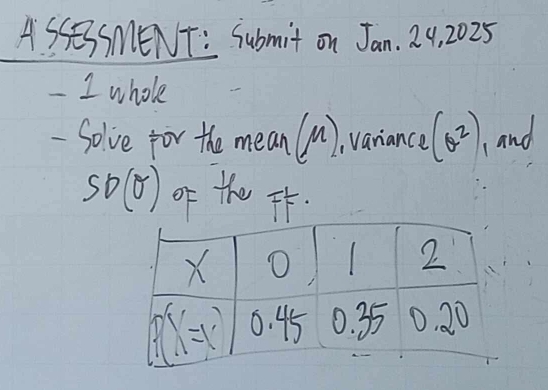 ASSESSMENT: Submit on Jan. 24, 2025
- 1 whole
- Solve for the mean (μ), variance (σ²), and
SD(σ) of the ff.
X 0 1 2
P(X=x) 0.45 0.35 0.20